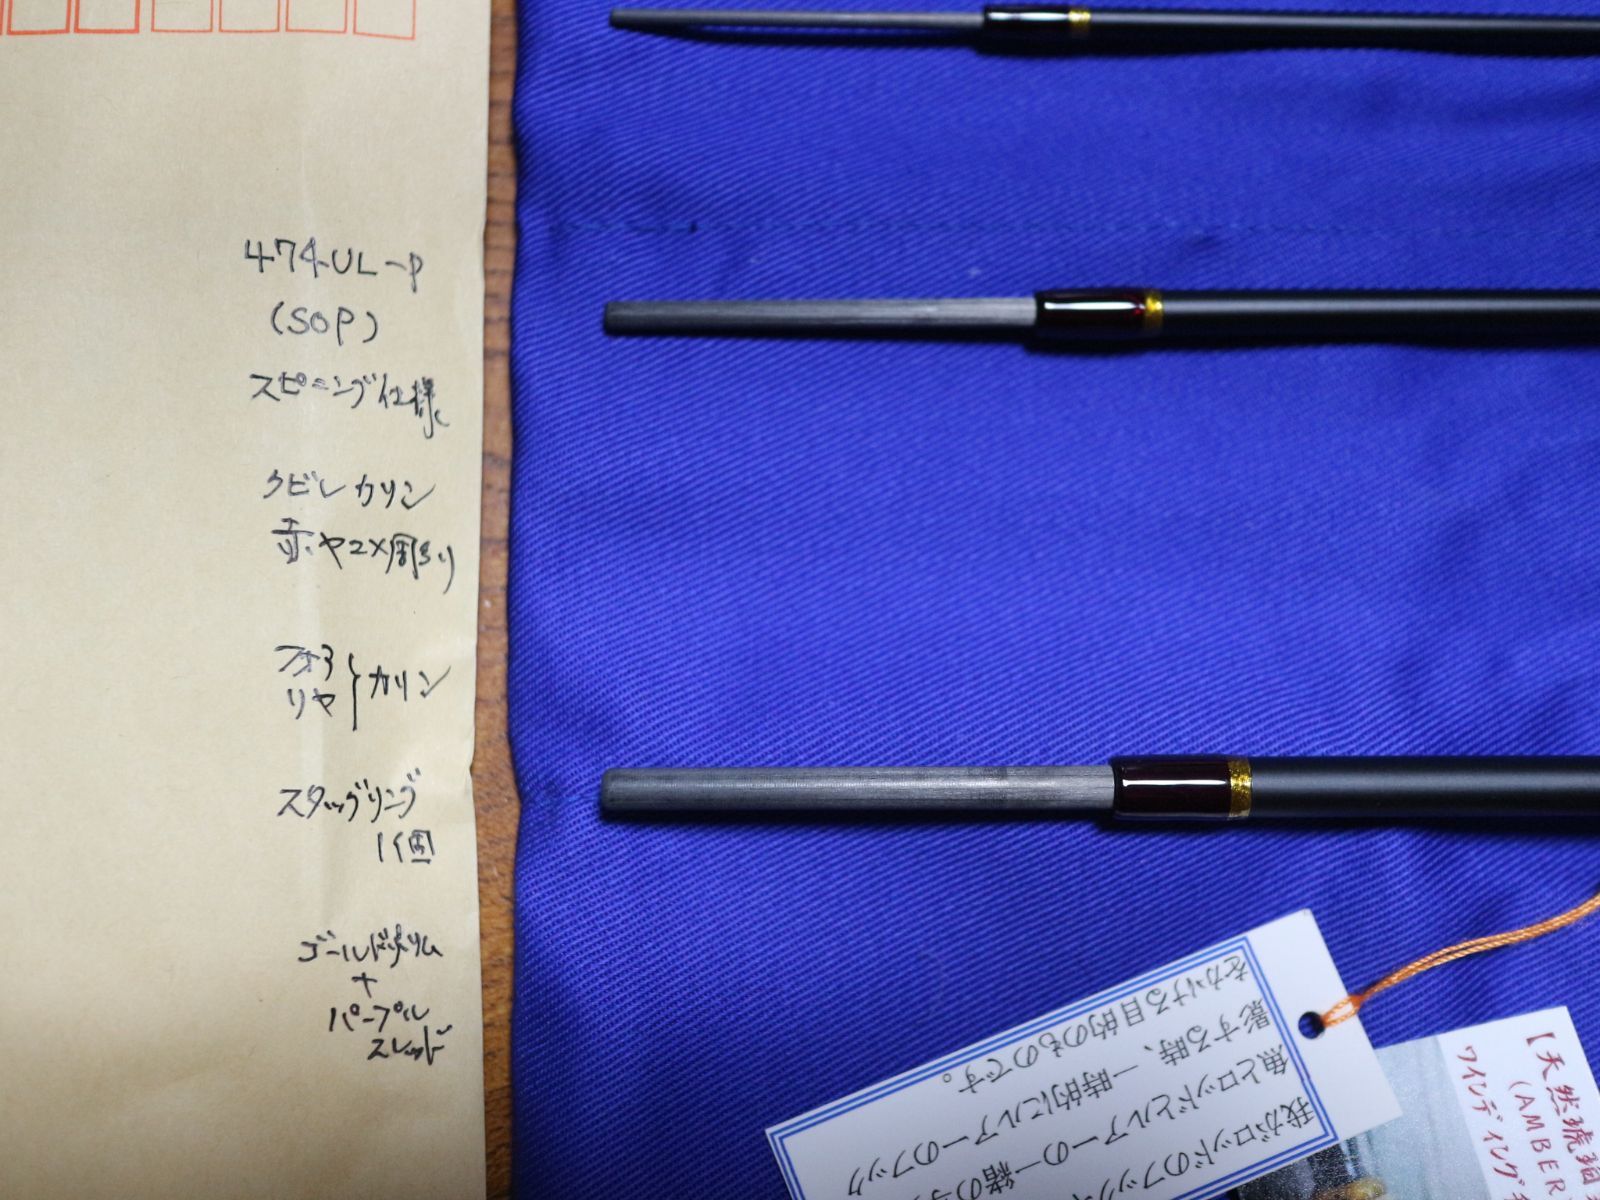 474UL-P
(SOP)
スピニング仕様
クビレカリン
赤ヤマメ彫り
フォア
リヤ
カリン
スタッグリング
1個
ゴールドトリム
+
パープル
スレッド
我がロッドのフック
魚とロッドとルアーの一緒の
影する時、一時的にルアーのフック
をかける目的のものです。
【天然琥珀
(AMBER
ワインディング